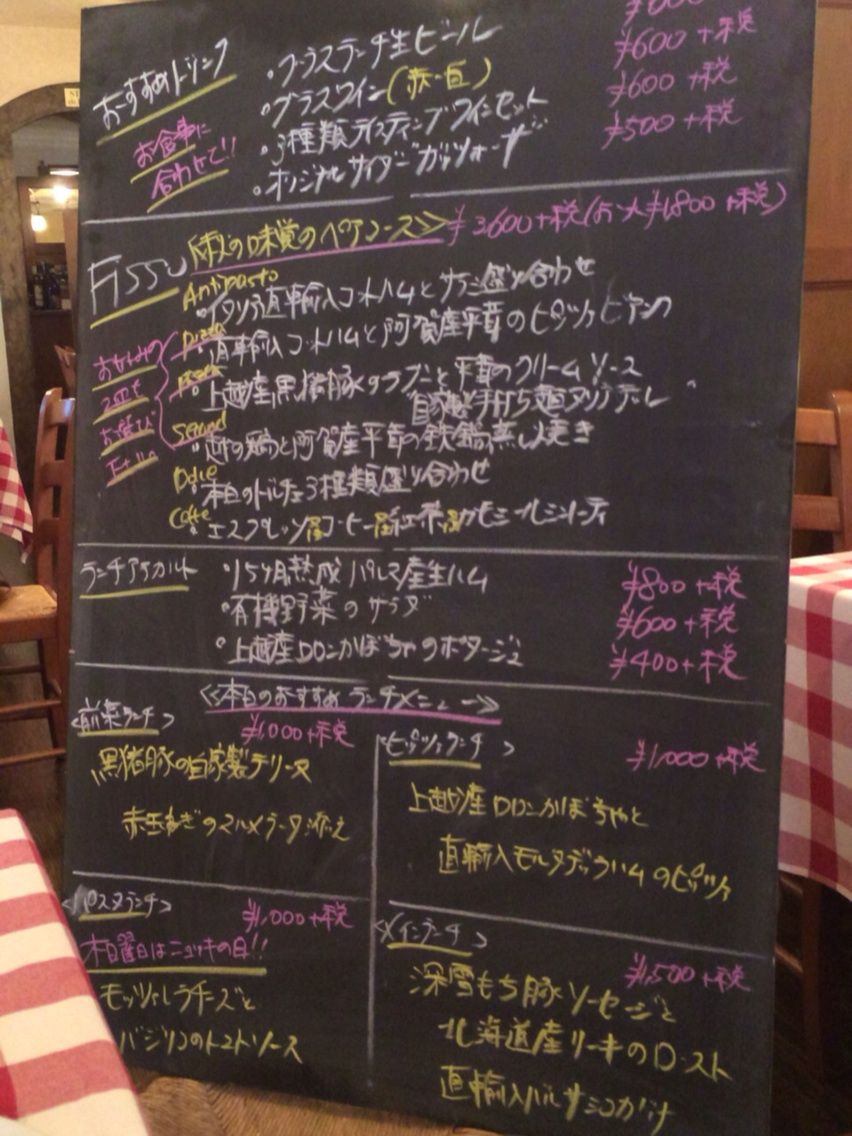 おすすめドリンク
お食事に
合わせて!!
・フラスランチ生ビール
・グラスワイン(赤・白) ¥600+税
・3種類テイスティングワインセット ¥600+税
・オリジナルサイダーガッツォーザ ¥500+税
味覚のペアコース≫ ¥3,600+税(お一人¥1,800+税)
Antipasto
・イタリア直輸入コットハムとサラミ盛り合わせ
Pizza
・直輸入コットハムと阿賀産平茸のピッツァビアンカ
Pasta
・上越産黒猪豚のラグーと平茸のクリームソース
自家製手打ち麺タリアテレ
Second
・越の鶏と阿賀産平茸の鉄鍋蒸し焼き
お好みの
2皿を
お選び
下さい
Dolce
・本日のドルチェ3種類盛り合わせ
Caffe
・エスプレッソorコーヒーor紅茶orカモミールミントティ
ランチアラカルト
・15ヶ月熟成パルマ産生ハム ¥800+税
・有機野菜のサラダ ¥600+税
・上越産ロロンかぼちゃのポタージュ ¥400+税
≪本日のおすすめランチメニュー≫
<前菜ランチ>
¥1,000+税
黒猪豚の自家製テリーヌ
赤玉ねぎのマルメラータ添え
<ピッツァランチ> ¥1,000+税
上越産ロロンかぼちゃと
直輸入モルタデッラハムのピッツァ
<パスタランチ> ¥1,000+税
木曜日はニョッキの日!!
モッツァレラチーズと
バジリコのトマトソース
<メインランチ>
¥1,500+税
深雪もち豚ソーセージと
北海道産リーキのロースト
直輸入バルサミコがけ